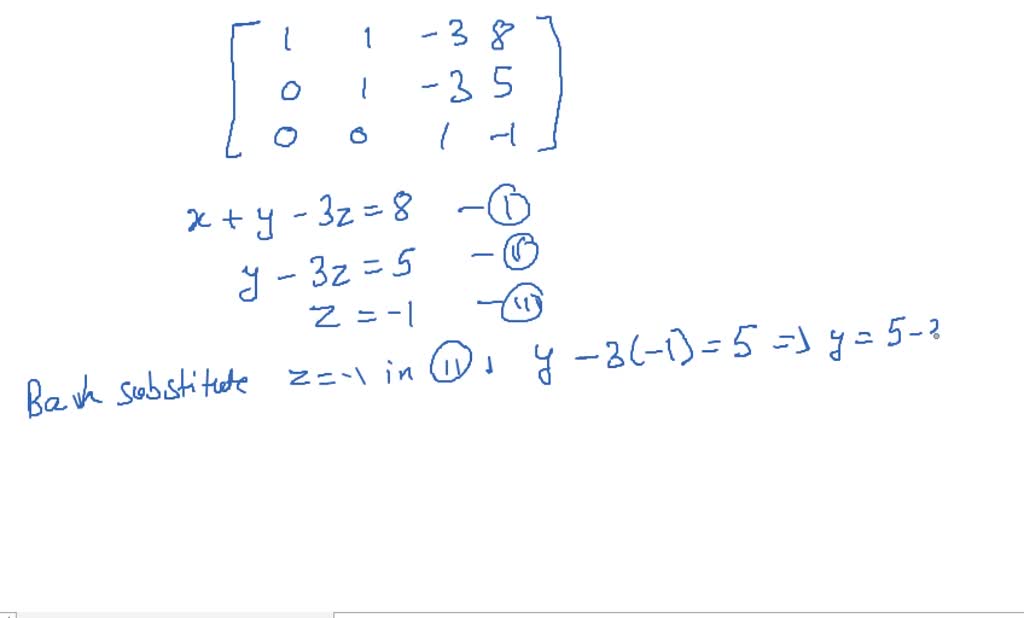 1 1 -3 8
0 1 -3 5
0 0 1 -1
x + y - 3z = 8 - (I)
y - 3z = 5 - (II)
z = -1 - (III)
Back substitute z = -1 in (II), y - 3(-1) = 5 => y = 5 - 3